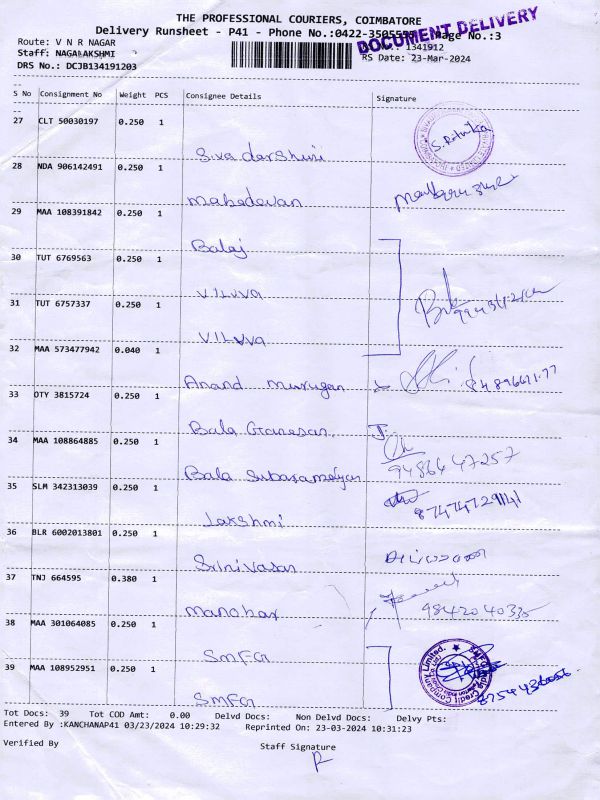 THE PROFESSIONAL COURIERS, COIMBATORE
Delivery Runsheet - P41 - Phone No.:0422-3505555 Page No.:3
DOCUMENT DELIVERY
Route: V N R NAGAR
Staff: NAGALAKSHMI
1341912
DRS No.: DCJB134191203
RS Date: 23-Mar-2024
S No Consignment No Weight PCS Consignee Details Signature
27 CLT 50030197 0.250 1
Sivadarshini
S. Rithika
28 NDA 906142491 0.250 1
Mahadevan
29 MAA 108391842 0.250 1
Balaj
30 TUT 6769563 0.250 1
VILVVA
31 TUT 6757337 0.250 1
VILVVA
32 MAA 573477942 0.040 1
Anand Murugan
33 OTY 3815724 0.250 1
Bala Ganesan
34 MAA 108864885 0.250 1
9486447257
Bala Subaramaiyan
35 SLM 342313039 0.250 1
8747472941
Lakshmi
36 BLR 6002013801 0.250 1
Srinivasan
37 TNJ 664595 0.380 1
Manohar
9842040335
38 MAA 301064085 0.250 1
SMFG
39 MAA 108952951 0.250 1
SMFG
Tot Docs: 39 Tot COD Amt: 0.00 Delvd Docs: Non Delvd Docs: Delvy Pts:
Entered By :KANCHANAP41 03/23/2024 10:29:32 Reprinted On: 23-03-2024 10:31:23
Verified By Staff Signature